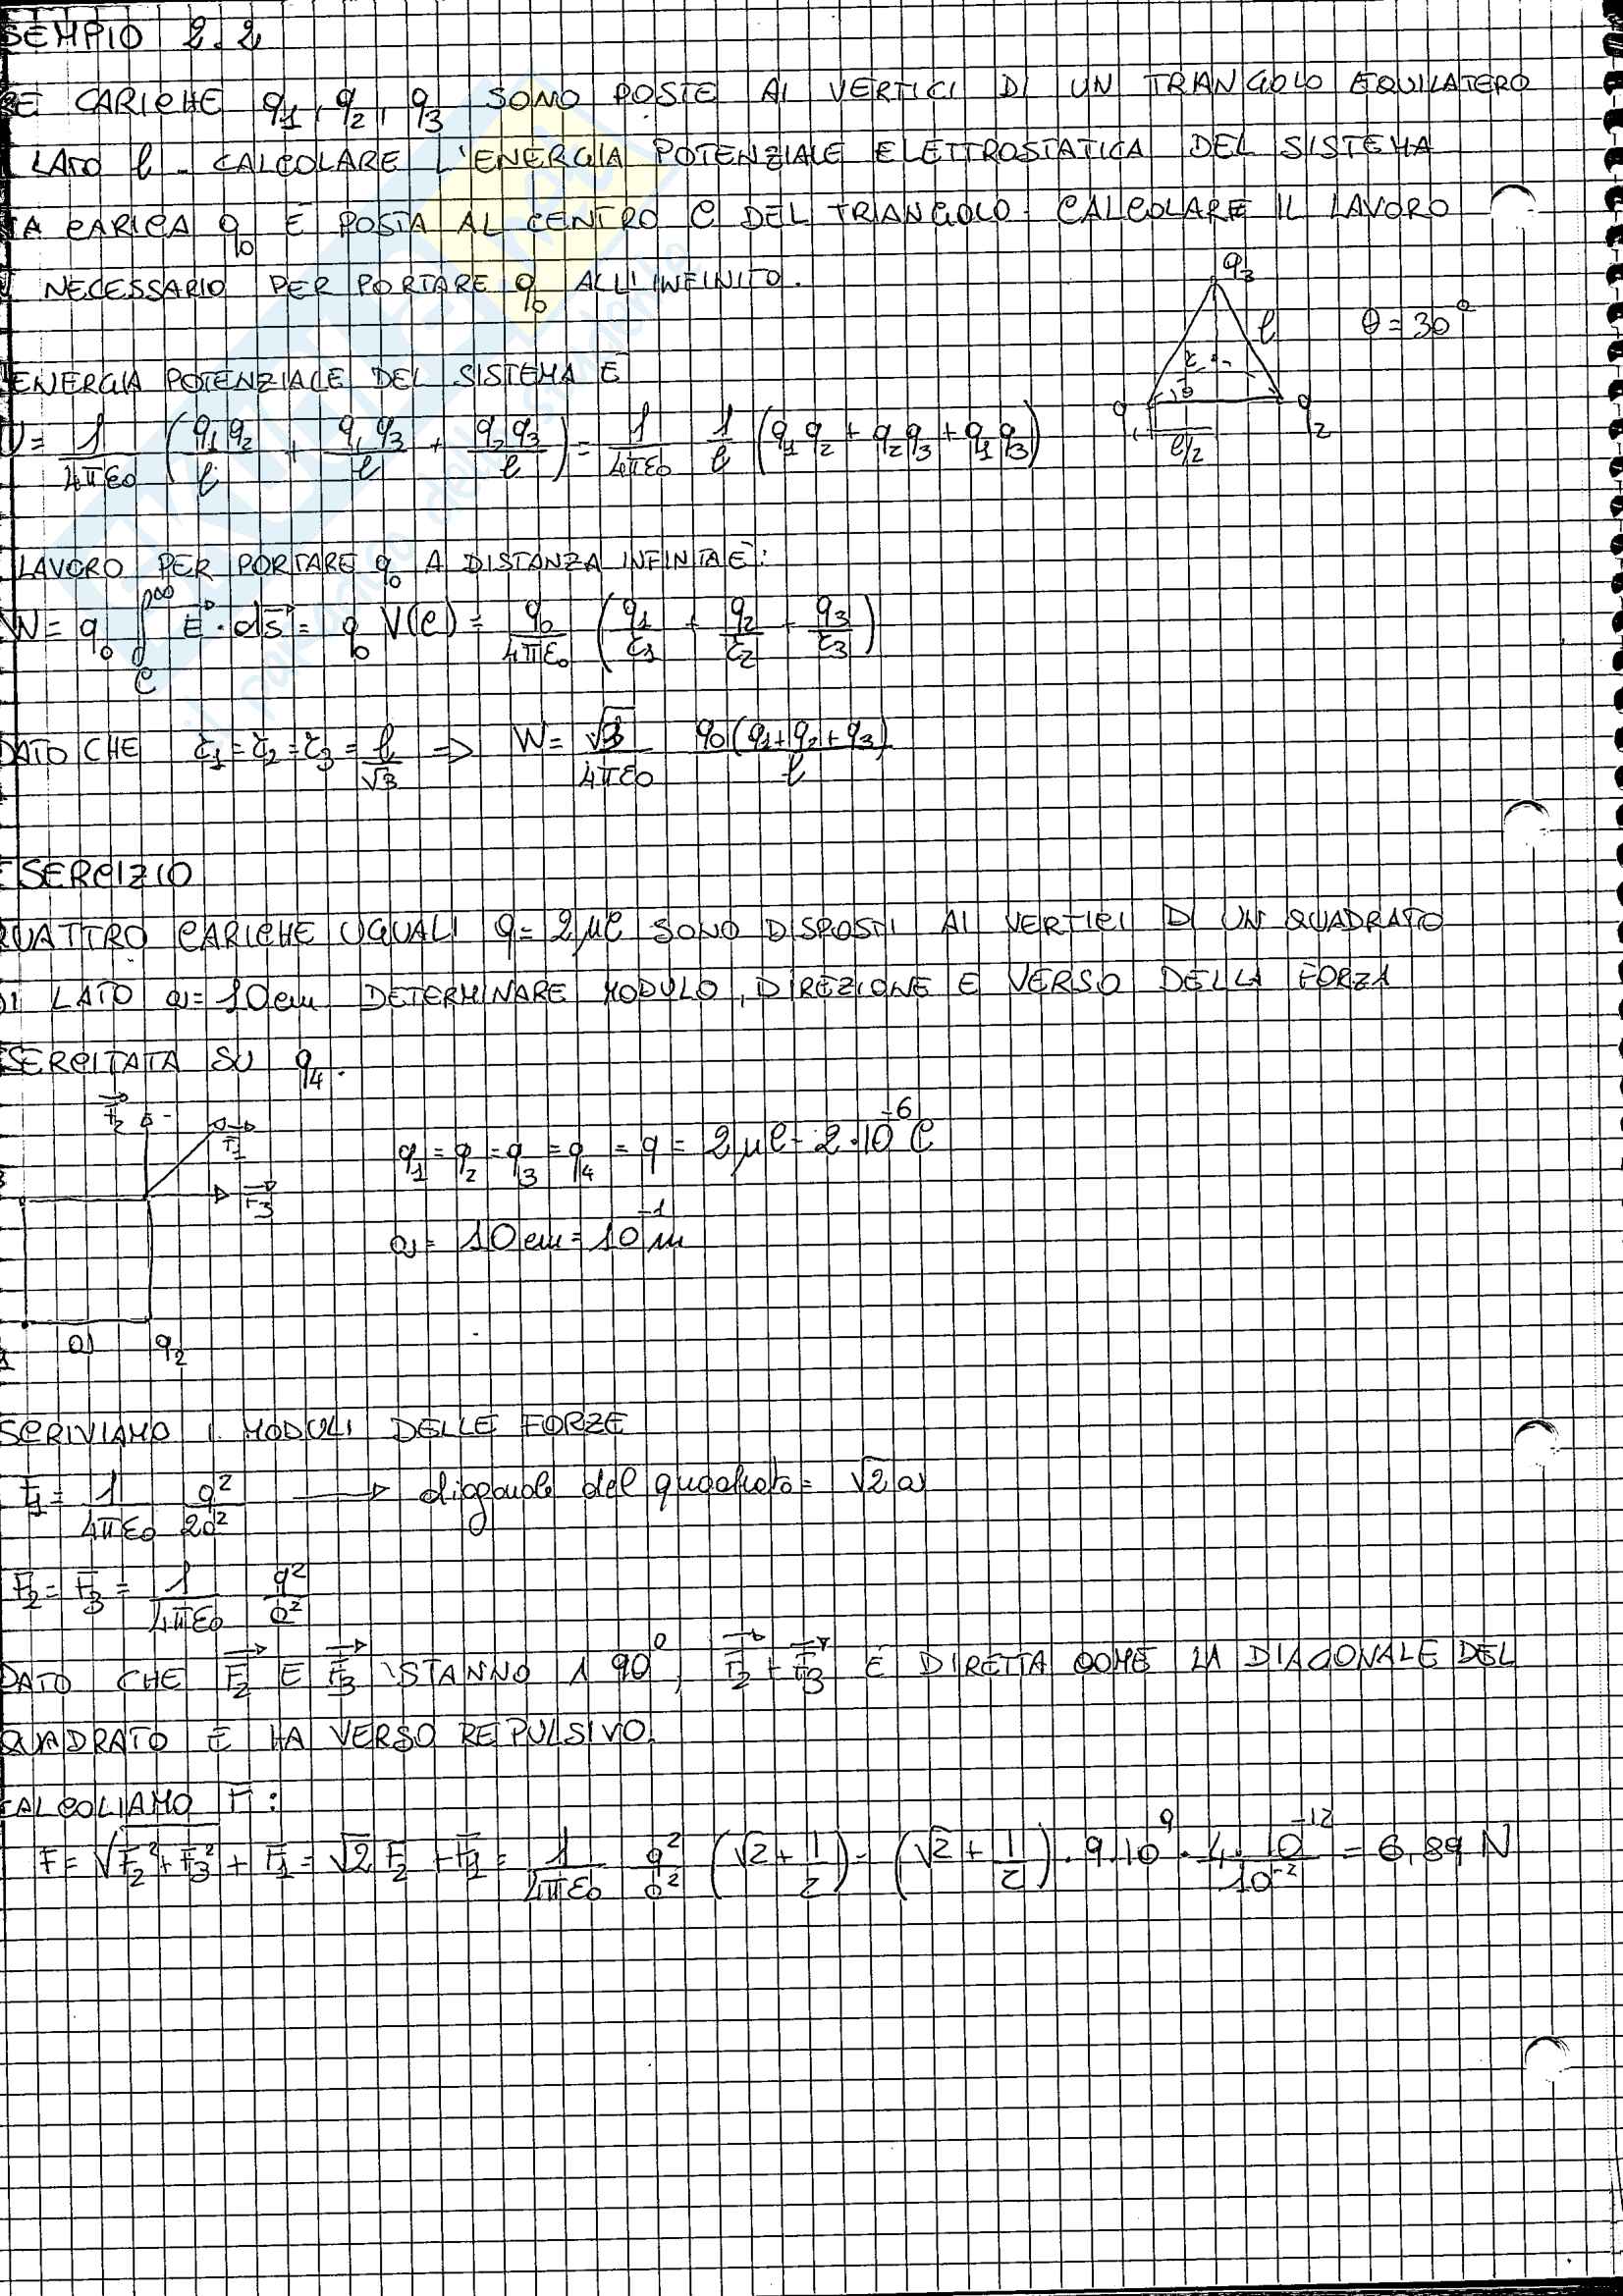 SEMPIO 2.2
RE CARICHE q1, q2, q3 SONO POSTE AI VERTICI DI UN TRIANGOLO EQUILATERO
LATO l. CALCOLARE L'ENERGIA POTENZIALE ELETTROSTATICA DEL SISTEMA
TA CARICA q0 È POSTA AL CENTRO C DEL TRIANGOLO. CALCOLARE IL LAVORO
NECESSARIO PER PORTARE q0 ALL'INFINITO.
q3
l θ = 30°
r
θ
q1 l/2 q2
ENERGIA POTENZIALE DEL SISTEMA È
U = 1/4πε0 (q1q2/l + q1q3/l + q2q3/l) = 1/4πε0 1/l (q1q2 + q2q3 + q1q3)
LAVORO PER PORTARE q0 A DISTANZA INFINITA È:
W = q0 ∫C∞ E⃗ · ds⃗ = q0 V(C) = q0/4πε0 (q1/r1 + q2/r2 + q3/r3)
DATO CHE r1 = r2 = r3 = l/√3 => W = √3/4πε0 q0(q1+q2+q3)/l
ESERCIZIO
QUATTRO CARICHE UGUALI q = 2μC SONO DISPOSTI AI VERTICI DI UN QUADRATO
DI LATO a = 10cm DETERMINARE MODULO, DIREZIONE E VERSO DELLA FORZA
ESERCITATA SU q4.
F⃗2
F⃗1
F⃗3
q1 = q2 = q3 = q4 = q = 2μC = 2·10^-6 C
a = 10cm = 10^-1 m
a q2
SCRIVIAMO I MODULI DELLE FORZE
F1 = 1/4πε0 q²/2a² → diagonale del quadrato = √2 a
F2 = F3 = 1/4πε0 q²/a²
DATO CHE F⃗2 E F⃗3 STANNO A 90°, F⃗2 + F⃗3 È DIRETTA COME LA DIAGONALE DEL
QUADRATO E HA VERSO REPULSIVO.
CALCOLIAMO F:
F = √F2² + F3² + F1 = √2 F2 + F1 = 1/4πε0 q²/a² (√2 + 1/2) = (√2 + 1/2) · 9·10^9 · 4·10^-12/10^-2 = 6,89 N